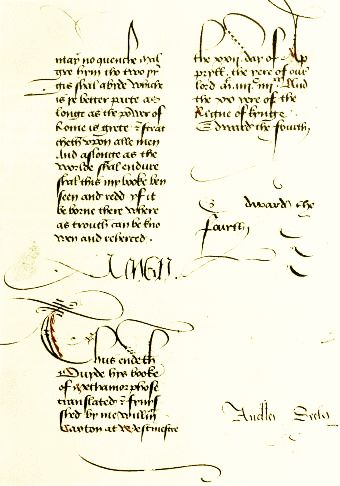 may no quenche mal
gre hym tho two par
tis shal abyde whiche
is ye better parte as
longe as the power of
Rome is grete & strat
cheth vpon alle men
And as longe as the
worlde shal endure
shal this my booke ben
seen and redd yf it
be borne there where
as trouth can be kno
wen and reherced.
AMEN
Thus endeth
Ouyde hys booke
of Methamorphose
translated & fynys
shed by me Willm
Caxton at Westmestre
the xxij day of Ap
pryll, the yere of our
lord
And
the xx yere of the
Regne of kynge
Edward the fourth
Edward the
fourth